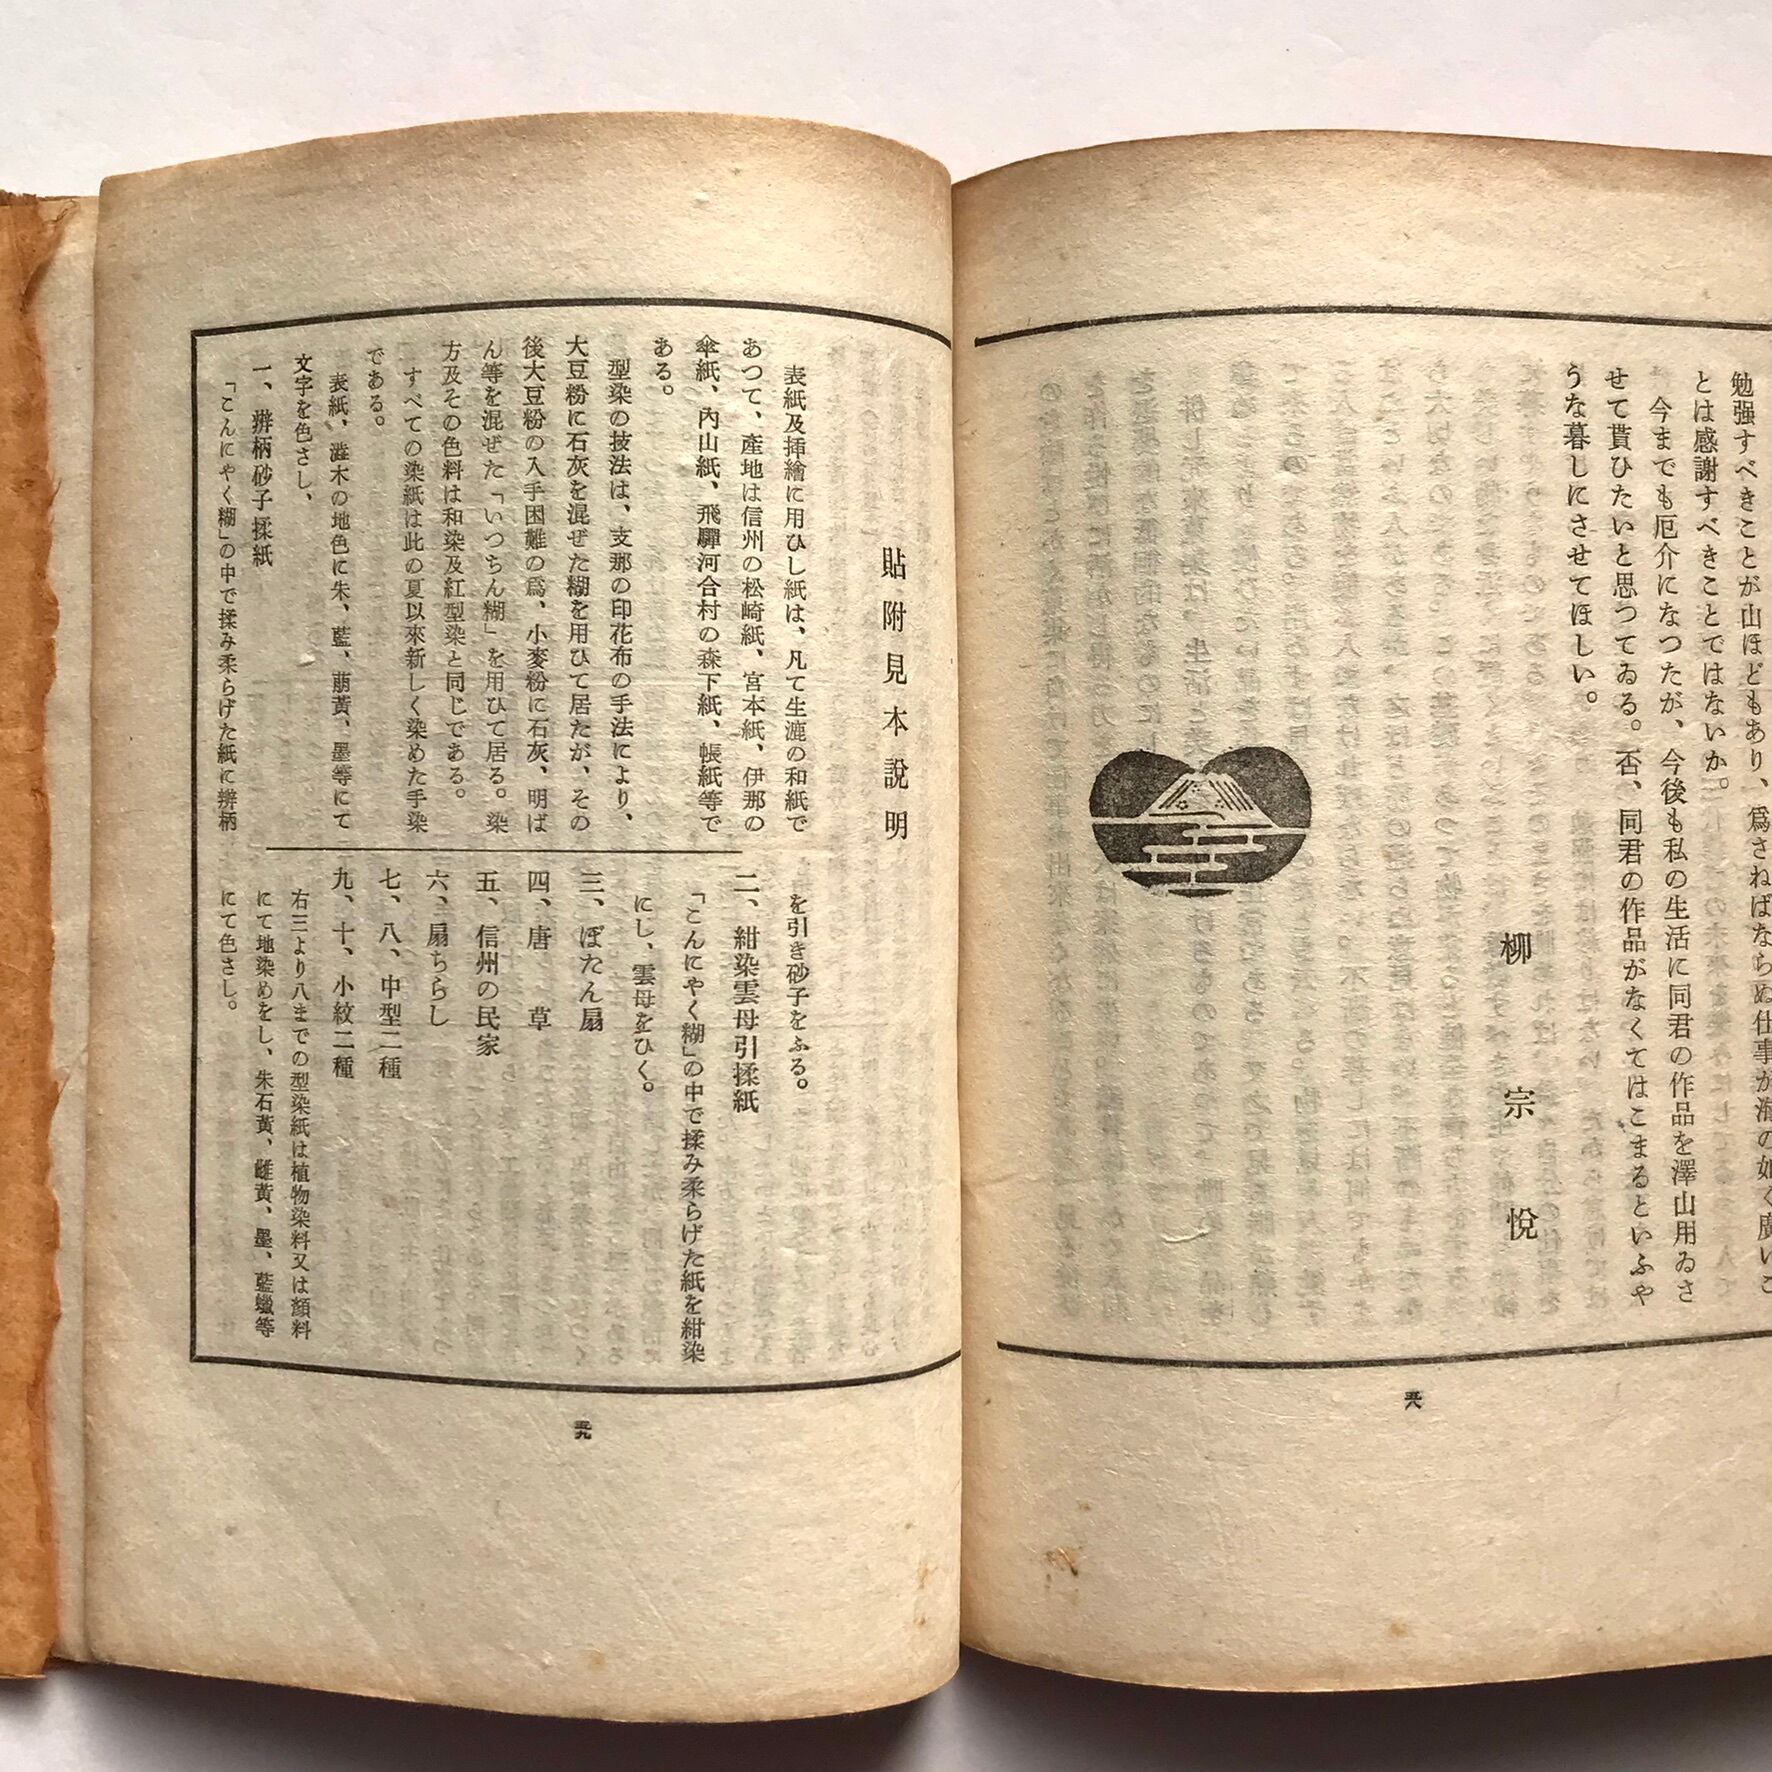 勉强すべきことが山ほどもあり、爲さねばならぬ仕事が海の如く廣いこ
とは感謝すべきことではないか。
今までも厄介になつたが、今後も私の生活に同君の作品を澤山用ゐさ
せて貰ひたいと思つてゐる。否、同君の作品がなくてはこまるといふや
うな暮しにさせてほしい。
柳宗悅
五八
貼附見本說明
表紙及挿繪に用ひし紙は、凡て生漉の和紙で
あつて、產地は信州の松崎紙、宮本紙、伊那の
傘紙、內山紙、飛驒河合村の森下紙、帳紙等で
ある。
型染の技法は、支那の印花布の手法により、
大豆粉に石灰を混ぜた糊を用ひて居たが、その
後大豆粉の入手困難の爲、小麥粉に石灰、明ば
ん等を混ぜた「いつちん糊」を用ひて居る。染
方及その色料は和染及紅型染と同じである。
すべての染紙は此の夏以來新しく染めた手染
である。
表紙、澁木の地色に朱、藍、萠黃、墨等にて
文字を色さし、
一、辨柄砂子揉紙
「こんにやく糊」の中で揉み柔らげた紙に辨柄
を引き砂子をふる。
二、紺染雲母引揉紙
「こんにやく糊」の中で揉み柔らげた紙を紺染
にし、雲母をひく。
三、ぼたん扇
四、唐草
五、信州の民家
六、扇ちらし
七、八、中型二種
九、十、小紋二種
右三より八までの型染紙は植物染料又は顏料
にて地染めをし、朱石黃、雌黃、墨、藍蠟等
にて色さし。
五九